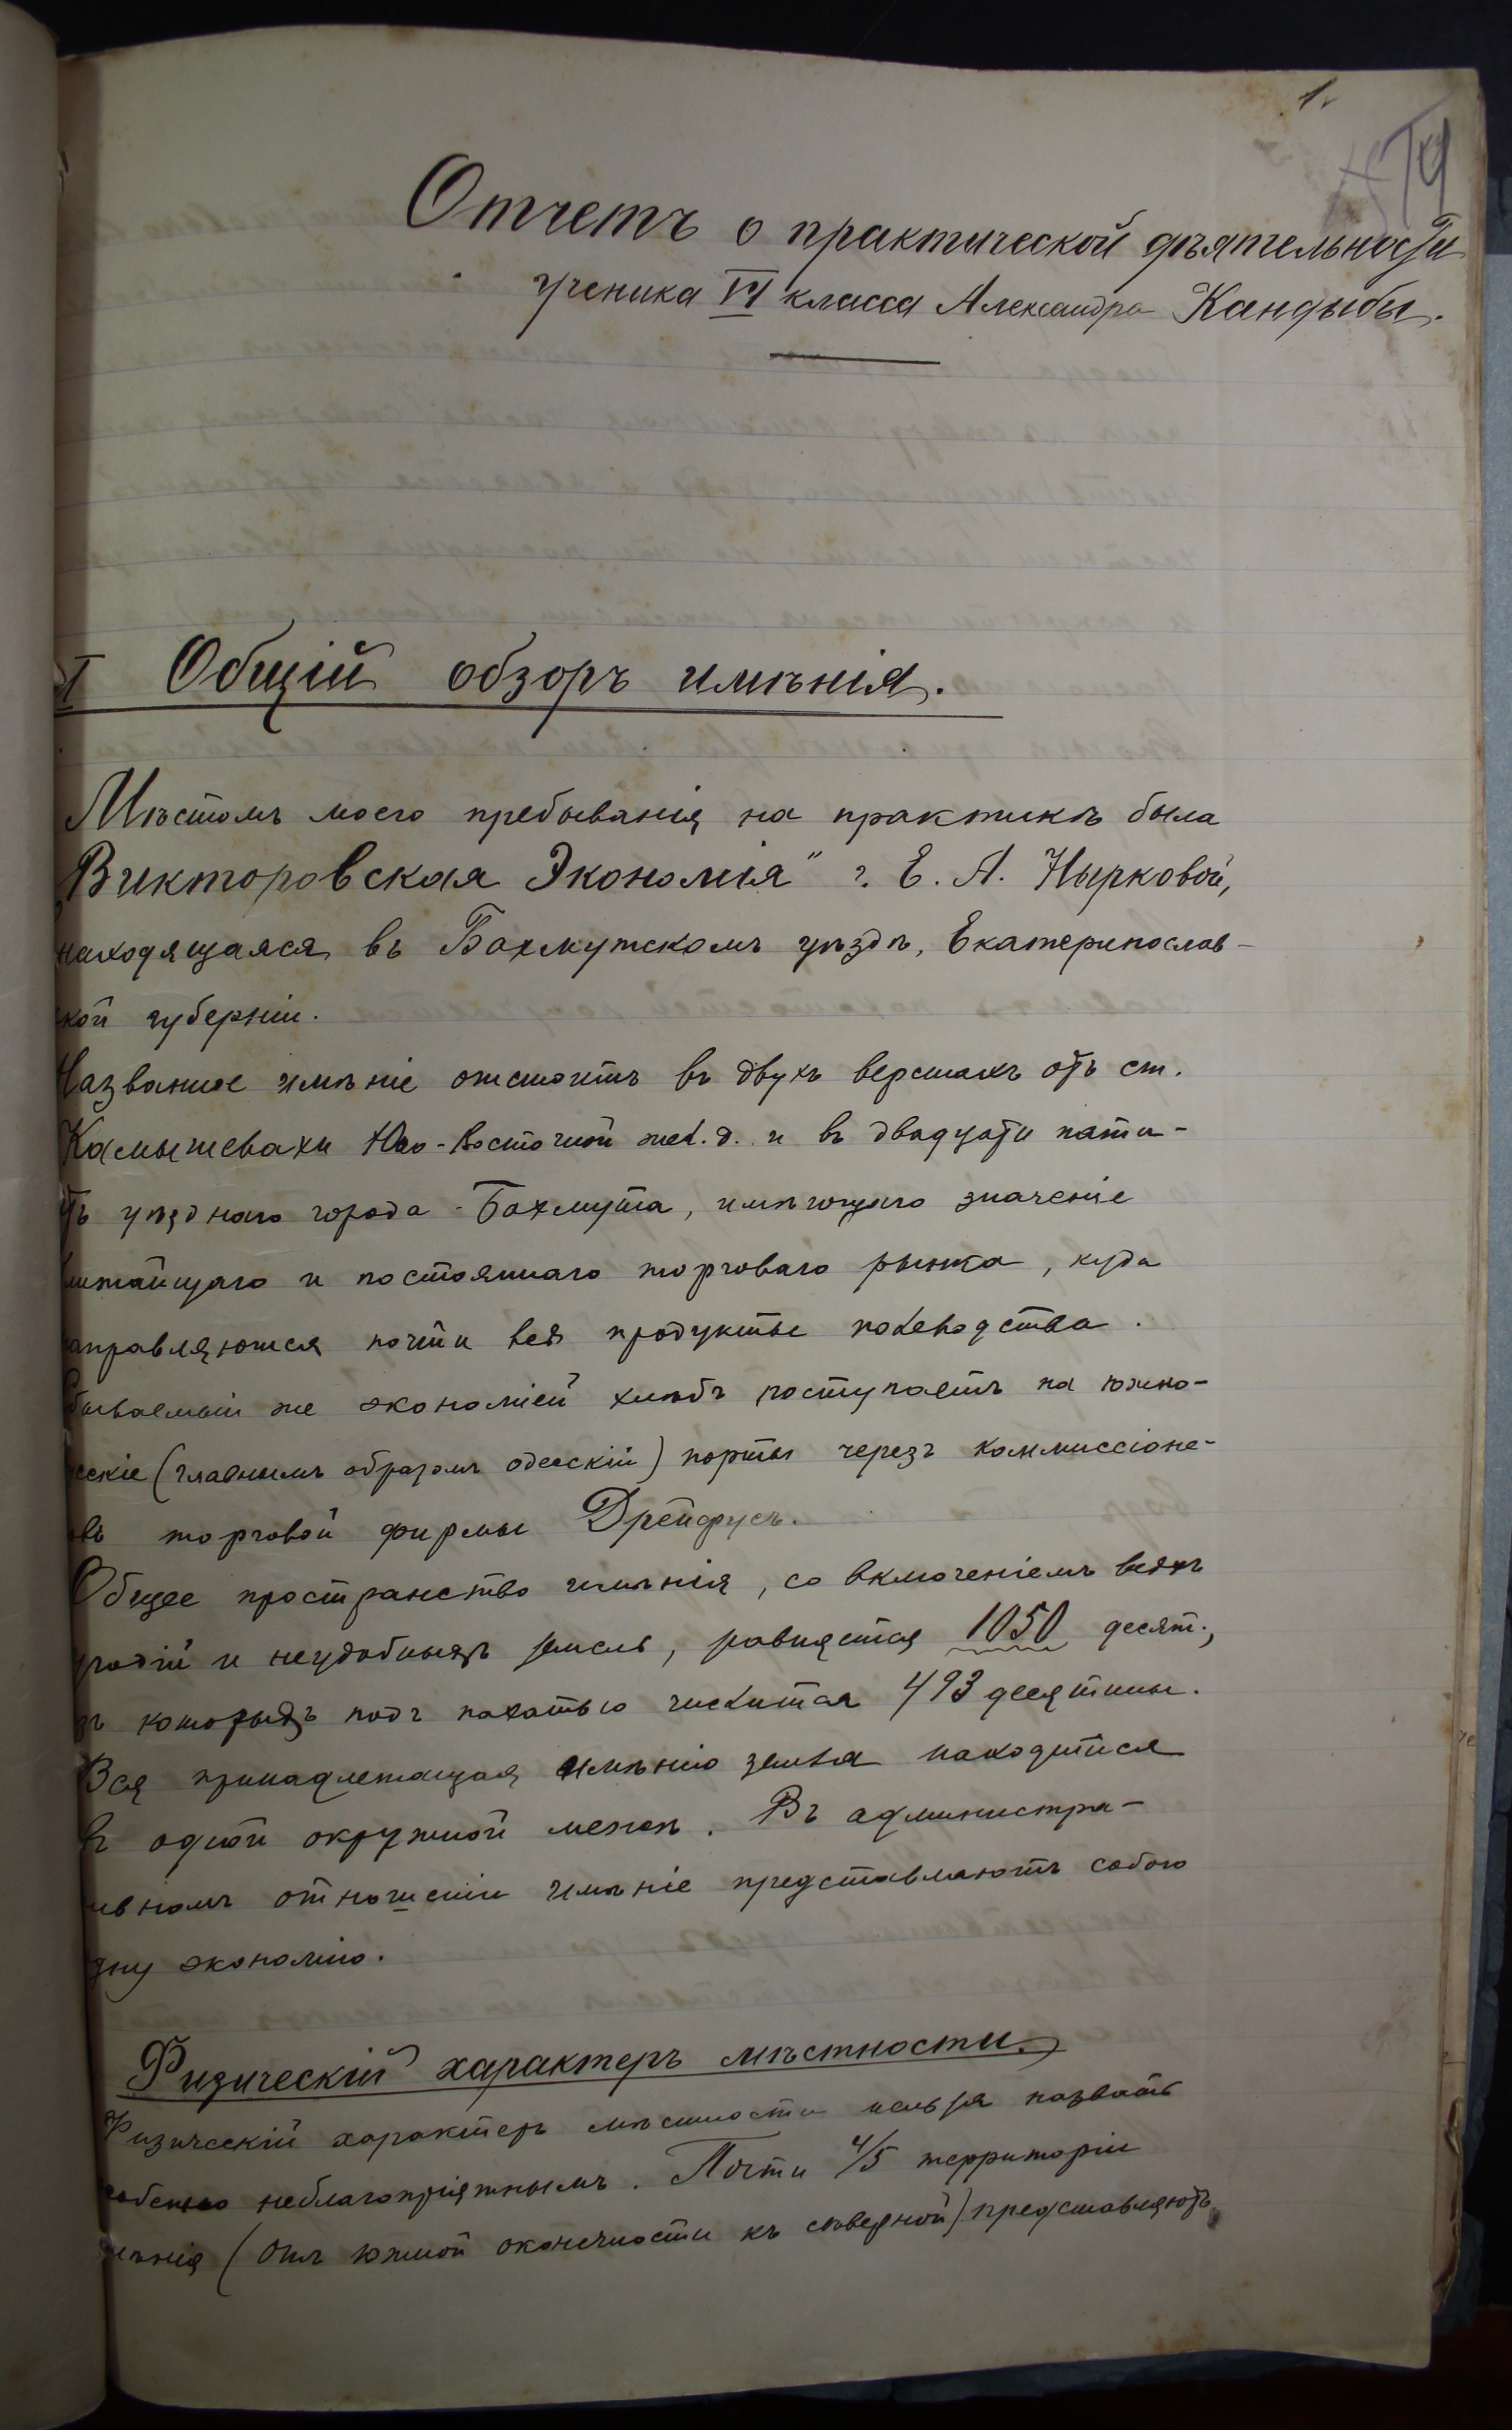 1.
Отчетъ о практической дѣятельности
ученика VI класса Александра Кандыбы.
I Общій обзоръ имѣнія.
Мѣстомъ моего пребыванія на практикѣ была
Викторовская Экономія" г. Е. А. Нырковой,
находящаяся въ Бахмутскомъ уѣздѣ, Екатеринослав-
кой губерніи.
Названное имѣніе отстоитъ въ двухъ верстахъ отъ ст.
Камышевахи Юго-Восточной жел. д. и въ двадцати пяти-
тъ уѣзднаго города - Бахмута, имѣющаго значеніе
лижайщаго и постояннаго торговаго рынка, куда
аправляются почти всѣ продукты полеводства.
бываемый же экономіей хлѣбъ поступаетъ на южно-
сскіе (главнымъ образомъ одесскій) порты черезъ коммиссіоне-
овъ торговой фирмы Дрейфусъ.
Общее пространство имѣнія, со включеніемъ всѣхъ
угодій и неудобныхъ земель, равняется 1050 десят.,
зъ которыхъ подъ пахатью числится 493 десятины.
Вся принадлежащая имѣнію земля находится
въ одной окружной межѣ. Въ администра-
ивномъ отношеніи имѣніе представляютъ собою
дну экономію.
Физическій характеръ мѣстности.
Физическій характеръ мѣстности нельзя назвать
собенно неблагопріятнымъ. Почти 4/5 территоріи
мѣнія (отъ южной оконечности къ сѣверной) представляютъ